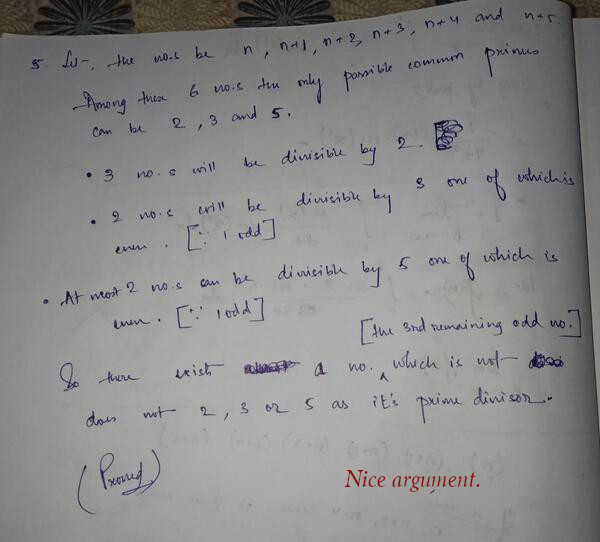 5. Let, the no.s be n, n+1, n+2, n+3, n+4 and n+5.
Among these 6 no.s the only possible common primes
can be 2, 3 and 5.
• 3 no.s will be divisible by 2.
• 2 no.s will be divisible by 3 one of which is
even. [∵ 1 odd]
• At most 2 no.s can be divisible by 5 one of which is
even. [∵ 1 odd]
[the 3rd remaining odd no.]
So there exists a no. ^ which is not
does not 2, 3 or 5 as it's prime divisor.
(Proved)
Nice argument.